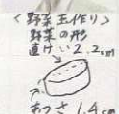 <野菜玉作り>
野菜の形
直けい2.2cm
あつさ1.4cm